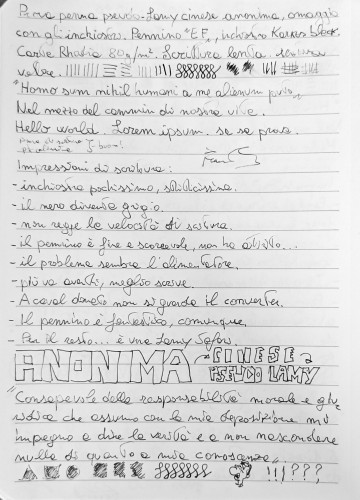 Prova penna pseudo-Lamy cinese anonima, omaggio
con gli inchiostri. Pennino "EF", inchiostro Karkos black.
Carta Rhodia 80 g/m². Scrittura lenta. scrittura
veloce.
"Homo sum nihil humani a me alienum puto".
Nel mezzo del cammin di nostra vita.
Hello world. Lorem ipsum. se se prova.
Impressioni di scrittura:
- inchiostra pochissimo, stitichissima.
- il nero diventa grigio.
- non regge la velocità di scrittura.
- il pennino è fine e scorrevole, non ha attrito...
- il problema sembra l'alimentatore.
- più va avanti, meglio scrive.
- A caval donato non si guarda il converter.
- Il pennino è fantastico, comunque.
- Per il resto... è una Lamy Safari.
ANONIMA CINESE
PSEUDO LAMY
"Consapevole della responsabilità morale e giu-
ridica che assumo con la mia deposizione mi
impegno a dire la verità e a non nascondere
nulla di quanto a mia conoscenza".
!!! ???